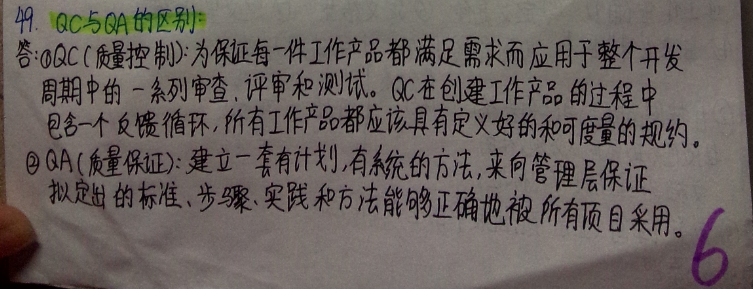 49. QC与QA的区别:
答:①QC(质量控制):为保证每一件工作产品都满足需求而应用于整个开发
周期中的一系列审查、评审和测试。QC在创建工作产品的过程中
包含一个反馈循环,所有工作产品都应该具有定义好的和可度量的规约。
②QA(质量保证):建立一套有计划,有系统的方法,来向管理层保证
拟定出的标准、步骤、实践和方法能够正确地被所有项目采用。
6